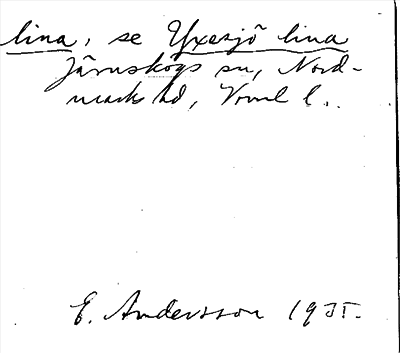 lina, se Yxesjö lina
Järnskogs sn, Nord-
marks hd, Vrml l.
E. Andersson 1935.